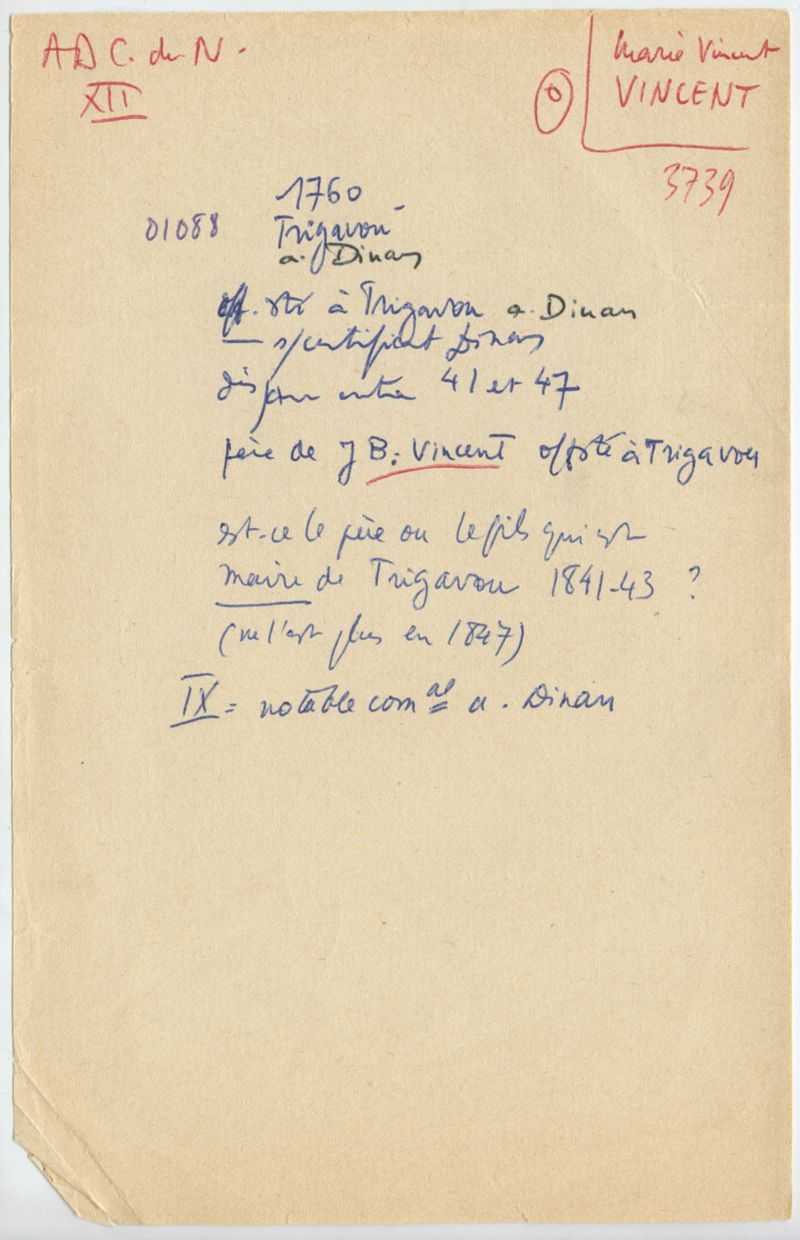 A D C. du N.
XII
Marie Vincent
VINCENT
O
3739
1760
01088 Trigavou
a. Dinan
off. sté à Trigavou a. Dinan
— s/certificat Dinan
disparu entre 41 et 47
père de J B. Vincent off sté à Trigavou
est-ce le père ou le fils qui est
maire de Trigavou 1841-43 ?
(ne l'est plus en 1847)
IX = notable com al a. Dinan